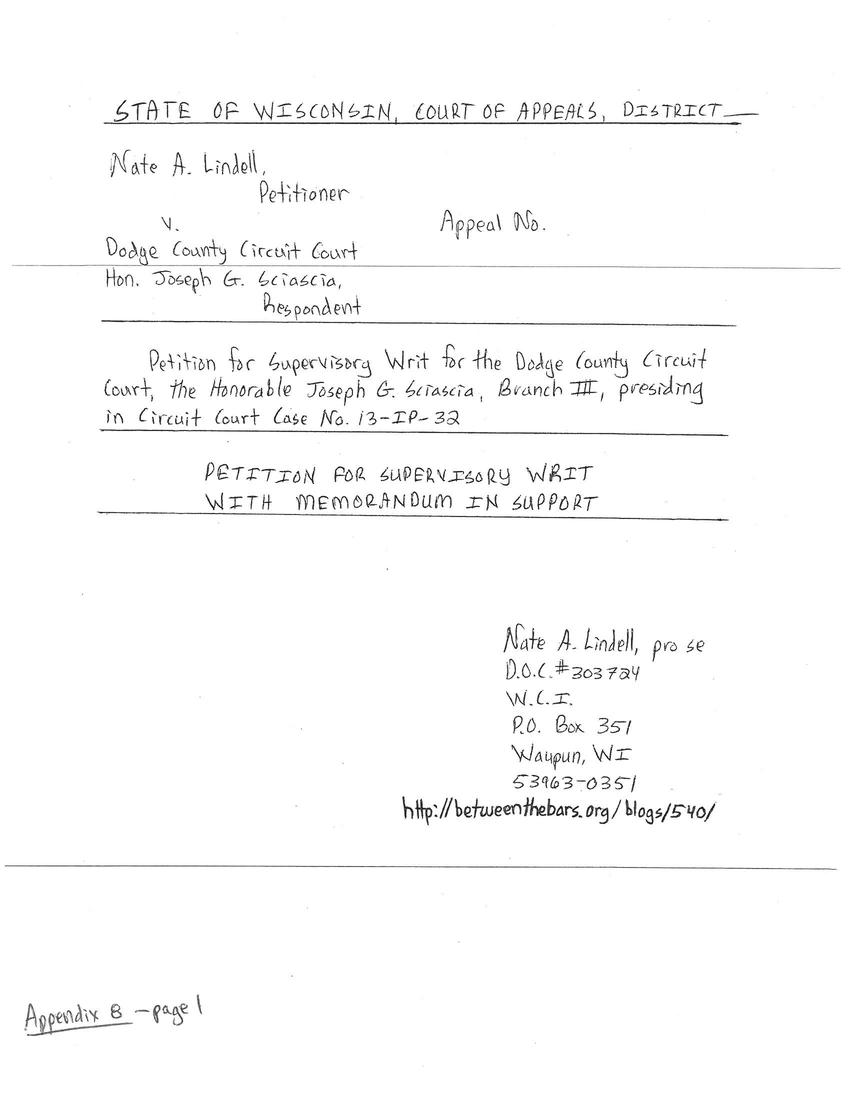 STATE OF WISCONSIN, COURT OF APPEALS, DISTRICT
Nate A. Lindell,
Petitioner
v.
Appeal No.
Dodge County Circuit Court
Hon. Joseph G. Sciascia,
Respondent
Petition for Supervisory Writ for the Dodge County Circuit
Court, the Honorable Joseph G. Sciascia, Branch III, presiding
in Circuit Court Case No. 13-IP-32
PETITION FOR SUPERVISORY WRIT
WITH MEMORANDUM IN SUPPORT
Nate A. Lindell, pro se
D.O.C.#303724
W.C.I.
P.O. Box 351
Waupun, WI
53963-0351
http://betweenthebars.org/blogs/540/
Appendix B -page 1